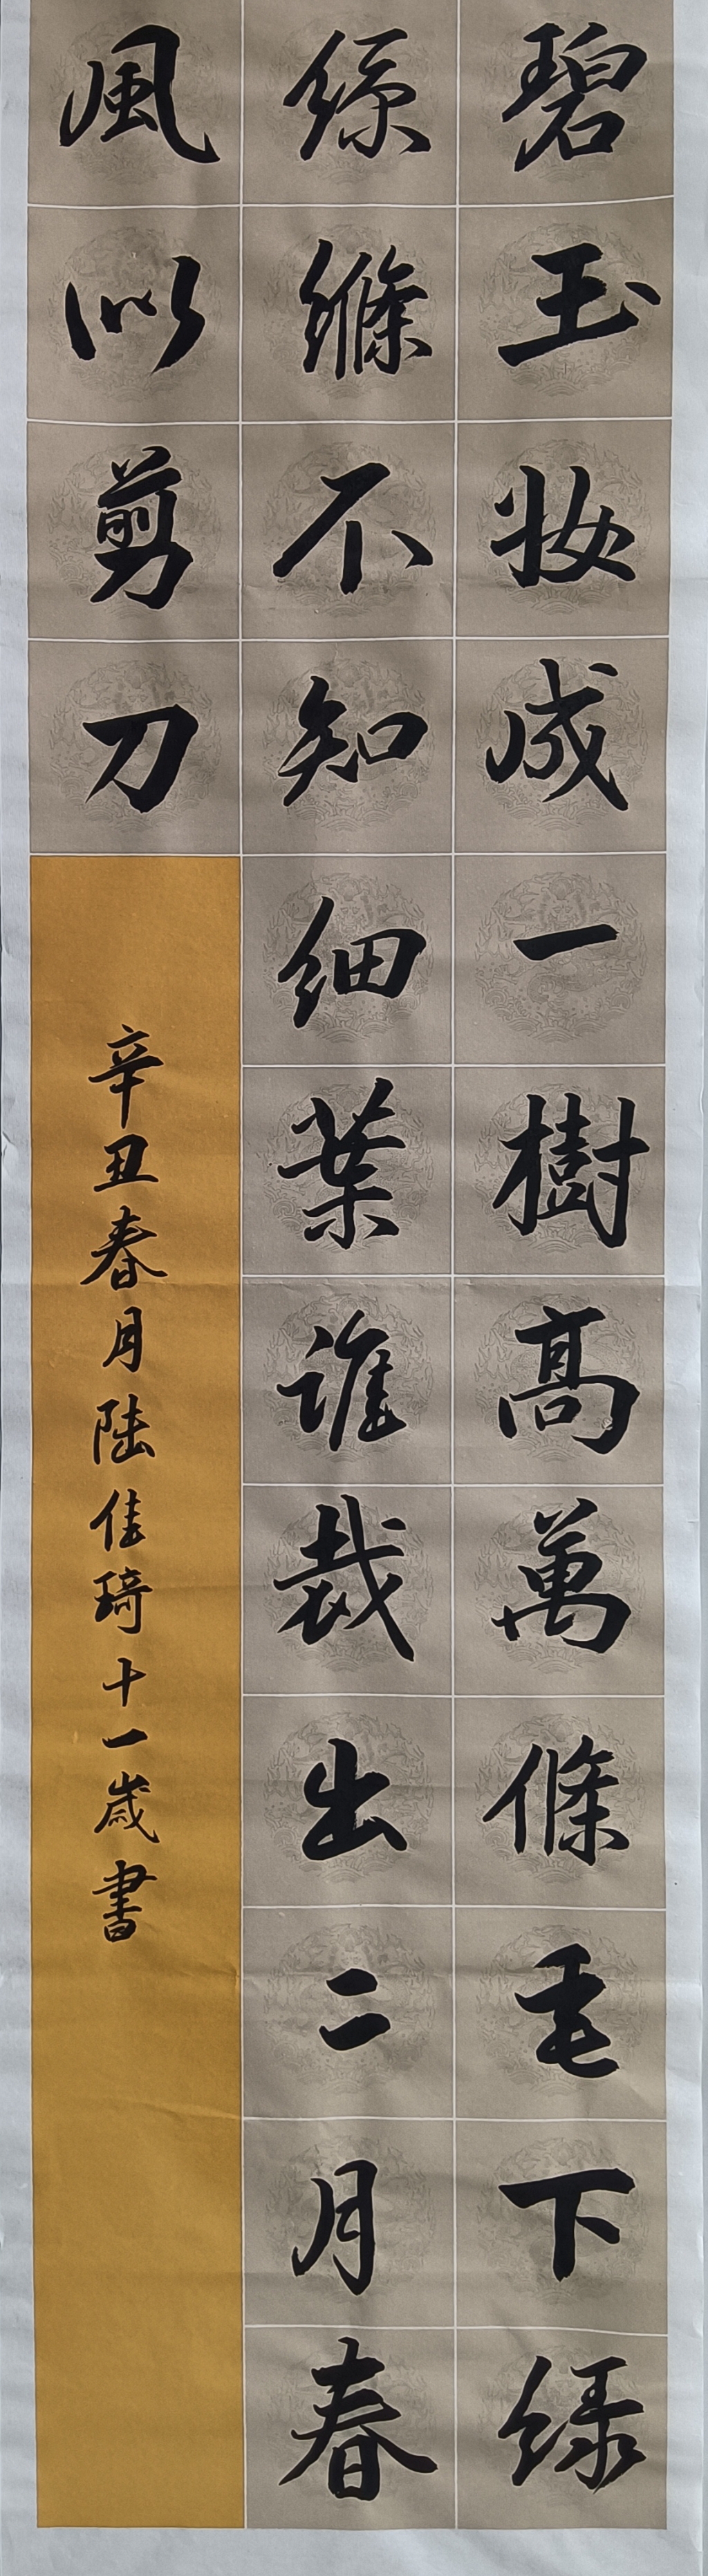 碧玉妝成一樹高萬條垂下绿
絲縧不知细葉誰裁出二月春
風似剪刀
辛丑春月陆佳琦十一歲書